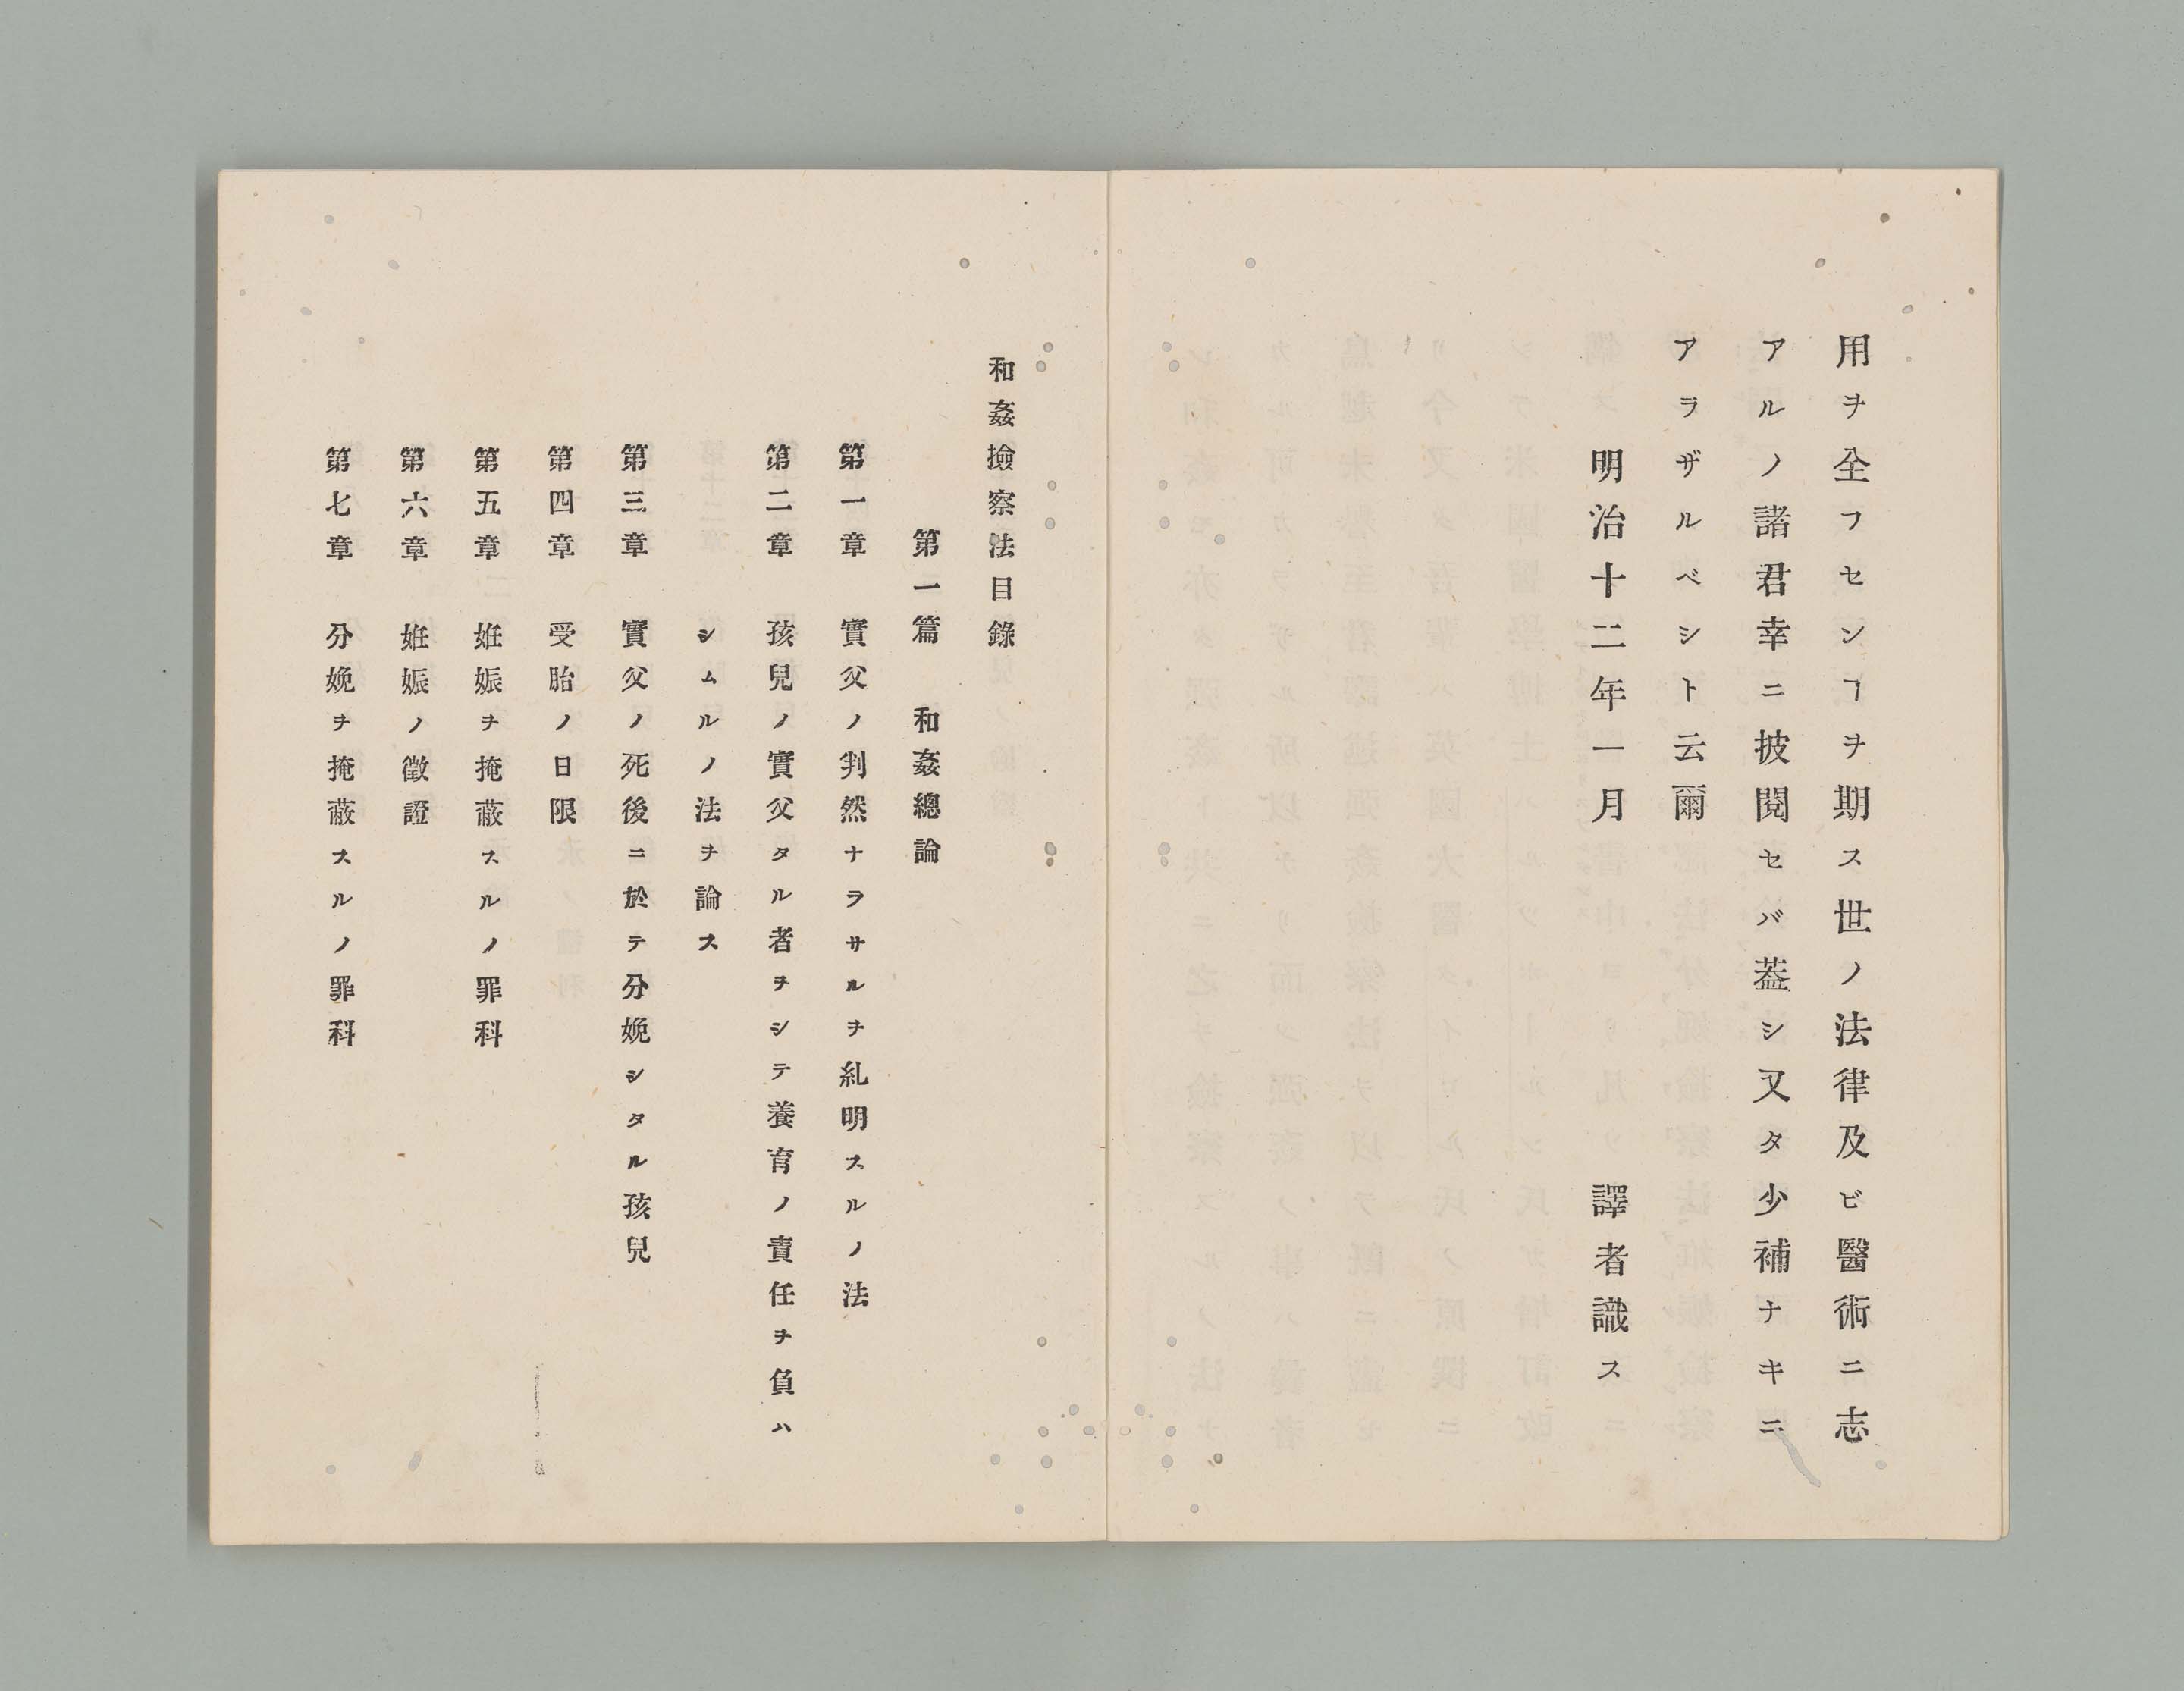 用ヲ全フセンヿヲ期ス世ノ法律及ビ醫術ニ志
アルノ諸君幸ニ披閱セバ葢シ又タ少補ナキニ
アラザルベシト云爾
明治十二年一月　譯者識ス
和姦撿察法目錄
第一篇　和姦總論
第一章　實父ノ判然ナラサルヲ糺明スルノ法
第二章　孩兒ノ實父タル者ヲシテ養育ノ責任ヲ負ハ
シムルノ法ヲ論ス
第三章　實父ノ死後ニ於テ分娩シタル孩兒
第四章　受胎ノ日限
第五章　姙娠ヲ掩蔽スルノ罪科
第六章　姙娠ノ徵證
第七章　分娩ヲ掩蔽スルノ罪科